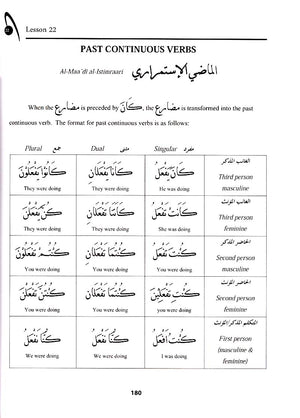 22
Lesson 22
PAST CONTINUOUS VERBS
Al-Maa'di al-Istimraari الماضي الإستمراري
When the مضارع is preceded by كَانَ, the مضارع is transformed into the past
continuous verb. The format for past continuous verbs is as follows:
Plural جمع Dual مثنى Singular مفرد
كَانُوا يَفْعَلُونَ كَانَا يَفْعَلَانِ كَانَ يَفْعَلُ الغائب المذكر
They were doing They were doing He was doing Third person
masculine
كُنَّ يَفْعَلْنَ كَانَتَا تَفْعَلَانِ كَانَتْ تَفْعَلُ الغائب المؤنث
They were doing They were doing She was doing Third person
feminine
كُنْتُمْ تَفْعَلُونَ كُنْتُمَا تَفْعَلَانِ كُنْتَ تَفْعَلُ الحاضر المذكر
You were doing You were doing You were doing Second person
masculine
كُنْتُنَّ تَفْعَلْنَ كُنْتُمَا تَفْعَلَانِ كُنْتِ تَفْعَلِيْنَ الحاضر المؤنث
You were doing You were doing You were doing Second person
feminine
كُنَّا نَفْعَلُ كُنَّا نَفْعَلُ كُنْتُ أَفْعَلُ المتكلم المذكر/المؤنث
We were doing We were doing I was doing First person
(masculine &
feminine)
180